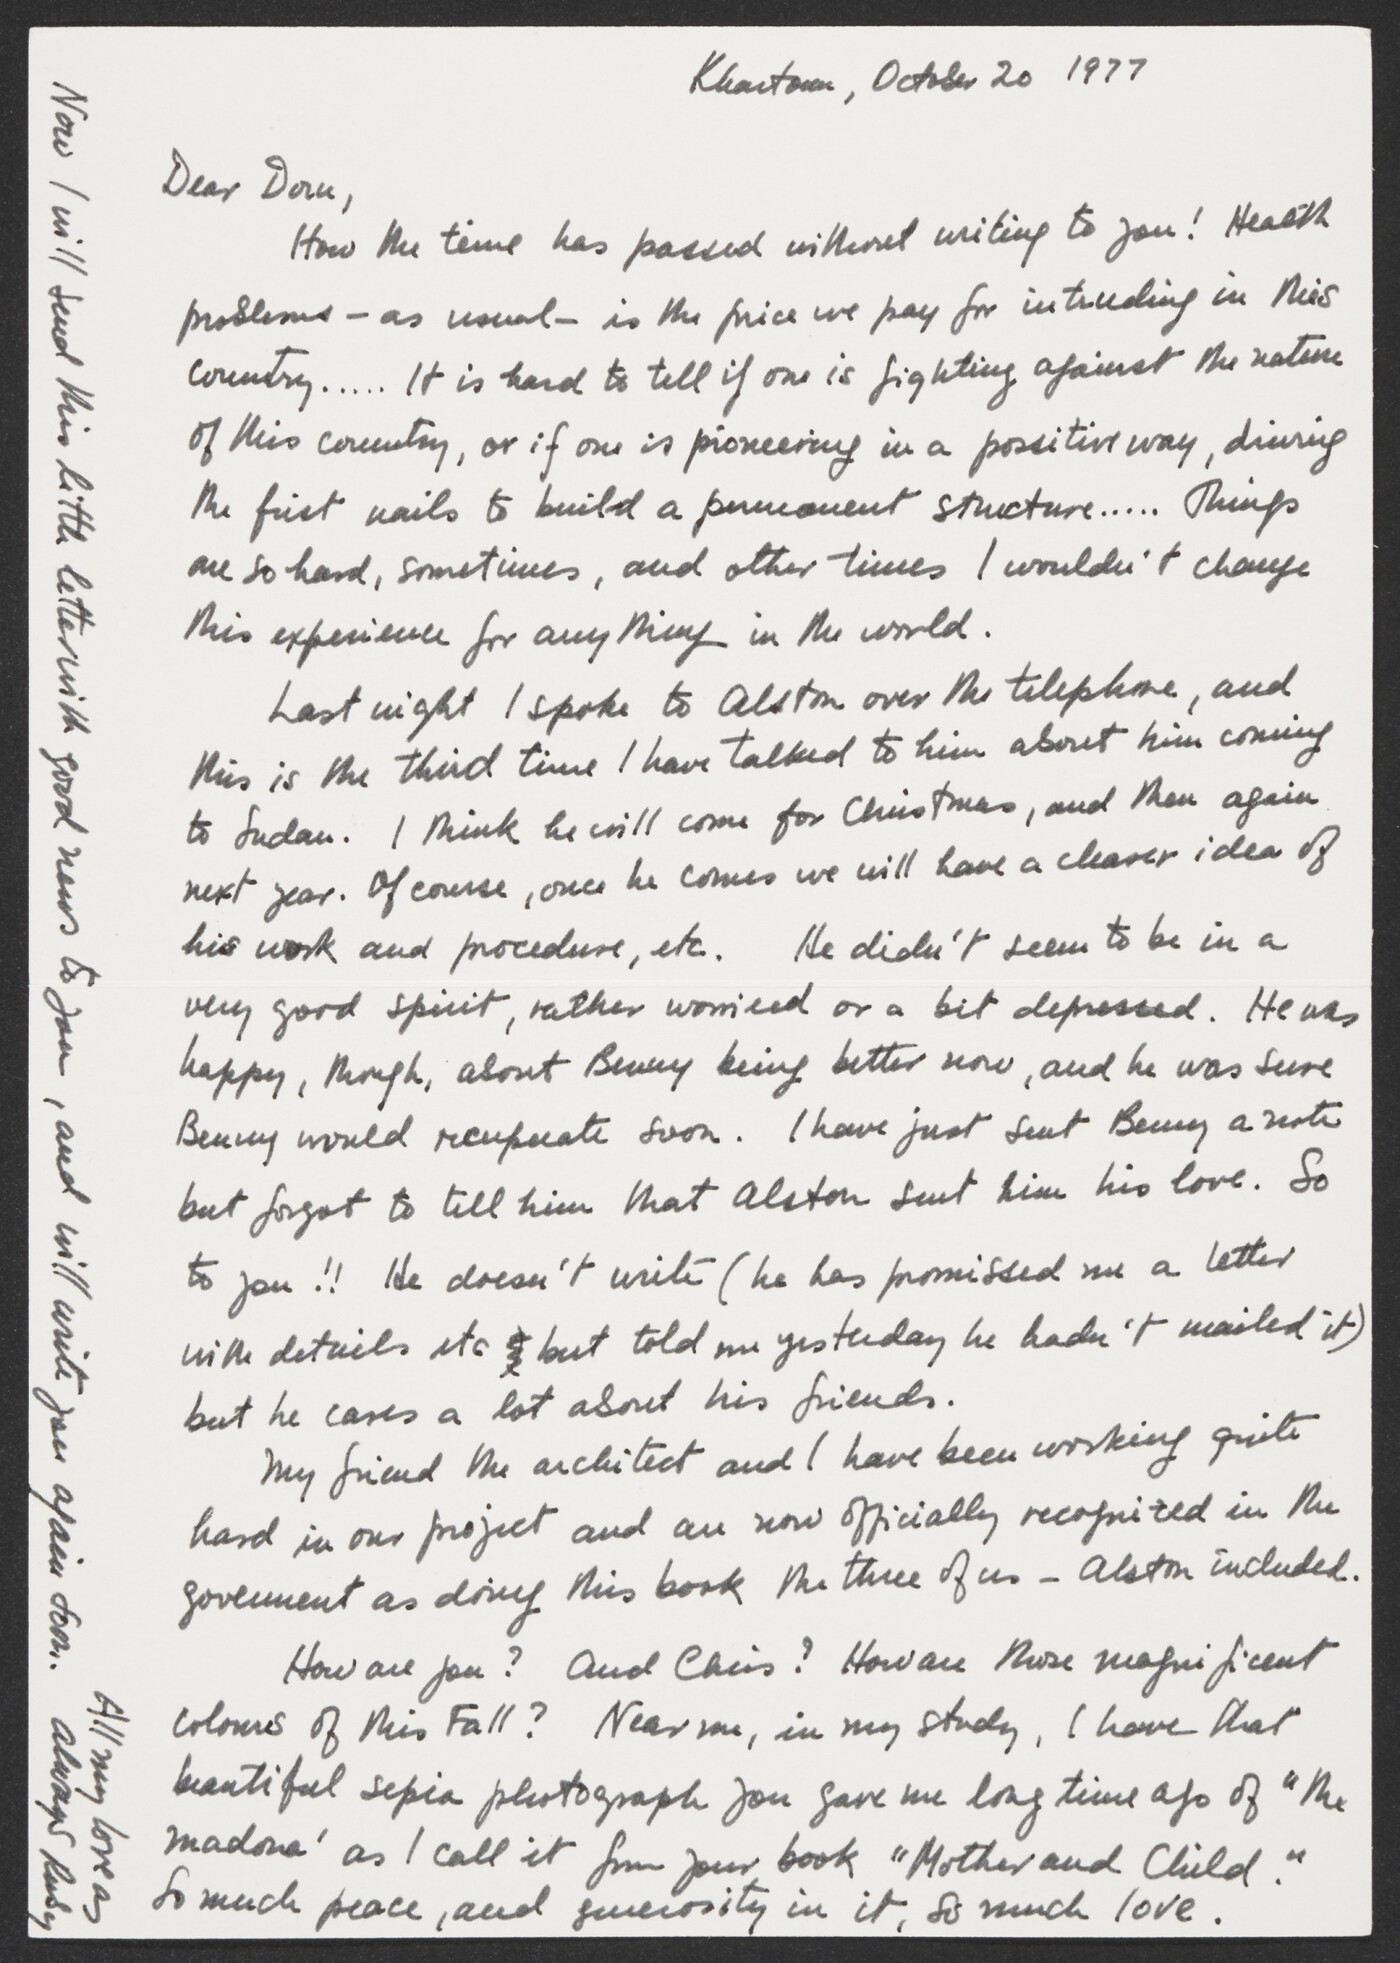 Khartoum, October 20 1977
Dear Dorn,
How the time has passed without writing to you! Health
problems – as usual – is the price we pay for intruding in this
country..... It is hard to tell if one is fighting against the nature
of this country, or if one is pioneering in a possitive way, driving
the first nails to build a permanent structure..... Things
are so hard, sometimes, and other times I wouldn't change
this experience for anything in the world.
Last night I spoke to Alston over the telephone, and
this is the third time I have talked to him about him coming
to Sudan. I think he will come for Christmas, and then again
next year. Of course, once he comes we will have a clearer idea of
his work and procedure, etc. He didn't seem to be in a
very good spirit, rather worried or a bit depressed. He was
happy, though, about Benny being better now, and he was sure
Benny would recuperate soon. I have just sent Benny a note
but forgot to tell him that Alston sent him his love. So
to you!! He doesn't write (he has promissed me a letter
with details etc but told me yesterday he hadn't mailed it)
but he cares a lot about his friends.
My friend the architect and I have been working quite
hard in our project and are now officially recognized in the
government as doing this book the three of us – Alston included.
How are you? And Chris? How are those magnificent
colours of this Fall? Near me, in my study, I have that
beautiful sepia photograph you gave me long time ago of "the
madona' as I call it from your book "Mother and Child."
So much peace, and generosity in it, so much love.
Now I will send this little letter with good news to you, and will write you again soon.
All my love as
always